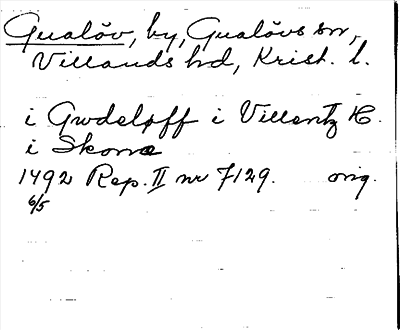 Gualöv, by, Gualövs sn,
Villands hd, Krist. l.
i Gwdeløff i Villentz H.
i Skone
1492 Rep. II nr 7129. orig.
6/5